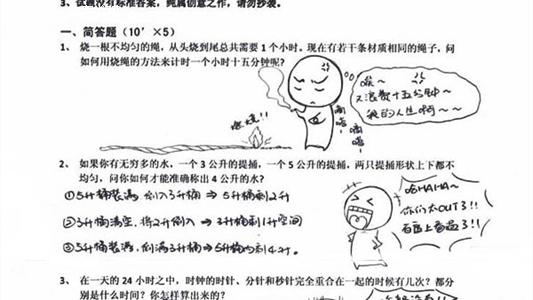 3、试题没有标准答案，纯属创意之作，请勿抄袭。
一、简答题（10′×5）
1、烧一根不均匀的绳，从头烧到尾总共需要 1 个小时。现在有若干条材质相同的绳子，问
如何用烧绳的方法来计时一个小时十五分钟呢？
唉～
又浪费十五分钟～
我的人生啊～～
燃烧！！
嘀嗒！
嘀嗒！
2、如果你有无穷多的水，一个 3 公升的提捅，一个 5 公升的提捅，两只提捅形状上下都不
均匀，问你如何才能准确称出 4 公升的水？
①5升桶装满，倒入3升桶 ⇒ 5升桶剩2升
②3升桶清空，将2升倒入 ⇒ 3升桶剩1升空间
③5升桶装满，倒满3升桶 ⇒ 5升桶内剩4升.
哈HAHA～
你们太OUT了!!
3、在一天的 24 小时之中，时钟的时针、分针和秒针完全重合在一起的时候有几次？都分
别是什么时间？你怎样算出来的？